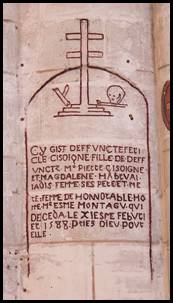 CY GIST DEFFVNCTE FELI
CLE CISOIGNE FILLE DE DEFF
VNCTZ Mᵉ PIERRE CISOIGNE
ET MAGDALENE
IADIS FEMME SES PERE ET ME
RE FEMME DE HONNORABLE HO
ME Mᵉ ESME MONTAGV QVI
DECEDA LE XIESME FEBVRIE
ET 1588 PRIES DIEV POVR
ELLE